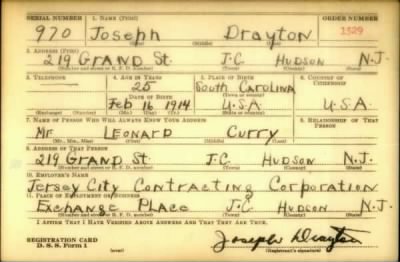 SERIAL NUMBER 1. NAME (Print) ORDER NUMBER
970 Joseph Drayton 1529
(First) (Middle) (Last)
2. ADDRESS (Print)
219 GRAND St. J.C. HUDSON N.J.
(Number and street or R. F. D. number) (Town) (County) (State)
3. TELEPHONE 4. AGE IN YEARS 5. PLACE OF BIRTH 6. COUNTRY OF CITIZENSHIP
25 South Carolina
DATE OF BIRTH (Town or county)
Feb 16 1914 U.S.A. U.S.A.
(Exchange) (Number) (Mo.) (Day) (Yr.) (State or country)
7. NAME OF PERSON WHO WILL ALWAYS KNOW YOUR ADDRESS 8. RELATIONSHIP OF THAT PERSON
Mr LEONARD CURRY
(Mr., Mrs., Miss) (First) (Middle) (Last)
9. ADDRESS OF THAT PERSON
219 GRAND St J.C. HUDSON N.J.
(Number and street or R. F. D. number) (Town) (County) (State)
10. EMPLOYER'S NAME
Jersey City Contracting Corporation
11. PLACE OF EMPLOYMENT OR BUSINESS
Exchange Place J.C. HUDSON N.J.
(Number and street or R. F. D. number) (Town) (County) (State)
I AFFIRM THAT I HAVE VERIFIED ABOVE ANSWERS AND THAT THEY ARE TRUE.
REGISTRATION CARD
D. S. S. Form 1 (over) Joseph Drayton
(Registrant's signature)